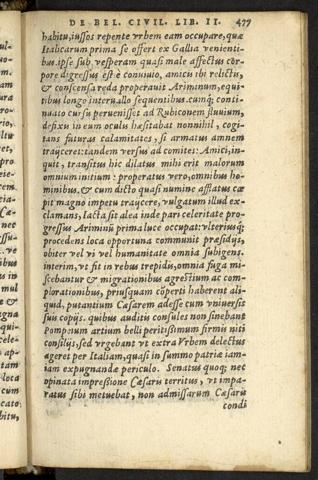 DE BEL. CIVIL. LIB. II. 477
habitu, iussos repente vrbem eam occupare, quæ
Italicarum prima se offert ex Gallia venienti-
bus. ipse sub vesperam quasi male affectus cor-
pore digressus est è conuiuio, amicis ibi relictis,
& conscensa reda properauit Ariminum, equi-
tibus longo interuallo sequentibus. cunq; conti-
nuato cursu peruenisset ad Rubiconem fluuium,
defixis in eum oculis hæsitabat nonnihil, cogi-
tans futuras calamitates, si armatus amnem
trayceret: tandem versus ad comites: Amici, in-
quit, transitus hic dilatus mihi erit malorum
omnium initium: properatus vero, omnibus ho-
minibus. & cum dicto quasi numine afflatus cœ
pit magno impetu traycere, vulgatum illud ex-
clamans, Iacta sit alea. inde pari celeritate pro-
gressus Arimini prima luce occupat: vlteriusq;
procedens loca opportuna communit præsidijs,
obiter vel vi vel humanitate omnia subigens.
interim, vt fit in rebus trepidis, omnia fuga mi-
scebantur & migrationibus agrestium ac com
plorationibus, priusquam cōperti haberent ali-
quid, putantium Cæsarem adesse cum vniuersis
suis copijs. quibus auditis consules non sinebant
Pompeium artium belli peritissimum firmis niti
consilijs, sed vrgebant vt extra Vrbem delectus
ageret per Italiam, quasi in summo patriæ iam-
iam expugnandæ periculo. Senatus quoq; nec
opinata impressione Cæsaris territus, vt impa-
ratus sibi metuebat, non admissarum Cæsaris
condi